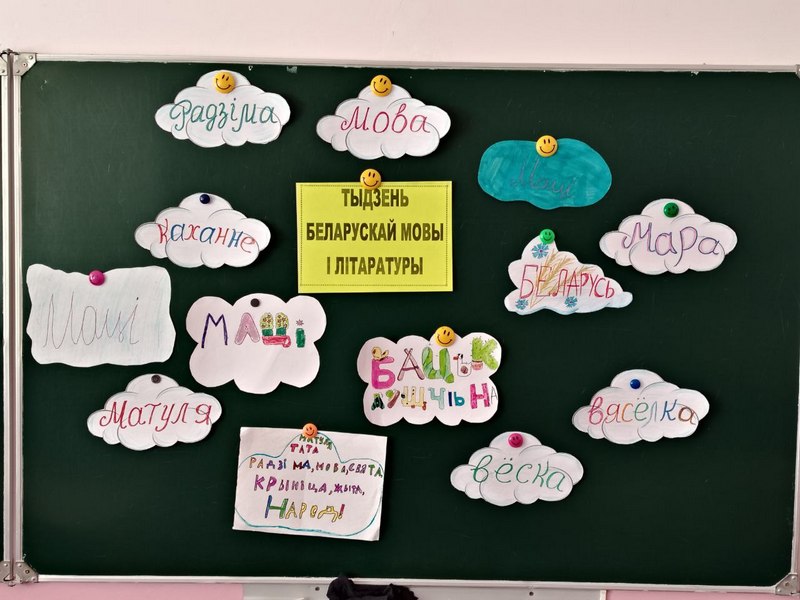 Радзіма
Мова
Маці
ТЫДЗЕНЬ
БЕЛАРУСКАЙ МОВЫ
І ЛІТАРАТУРЫ
Каханне
Мара
БЕЛАРУСЬ
Маці
МАЦІ
БАЦЬК
АЎШЧЫНА
Матуля
вясёлка
вёска
ТАТА
РАДЗІМА, МОВА, СВЯТА,
КРЫНІЦА, ЖЫТА,
НАРОД!